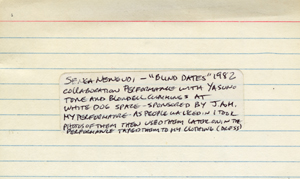 SENGA NENGUDI - "BLIND DATES" 1982
COLLABORATION PERFORMANCE WITH YASUNO
TONE AND BLONDELL CUMMINGS AT
WHITE DOG SPACE - SPONSORED BY J.A.M.
MY PERFORMANCE - AS PEOPLE WALKED IN I TOOK
PHOTOS OF THEM THEN USED THEM LATER ON IN THE
PERFORMANCE TAPED THEM TO MY CLOTHING (DRESS)